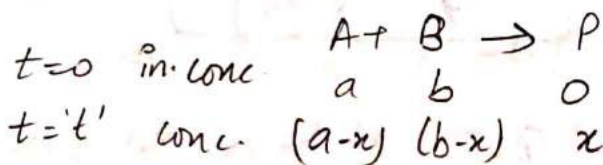 A + B → P
t=0 in. conc a b 0
t='t' conc. (a-x) (b-x) x